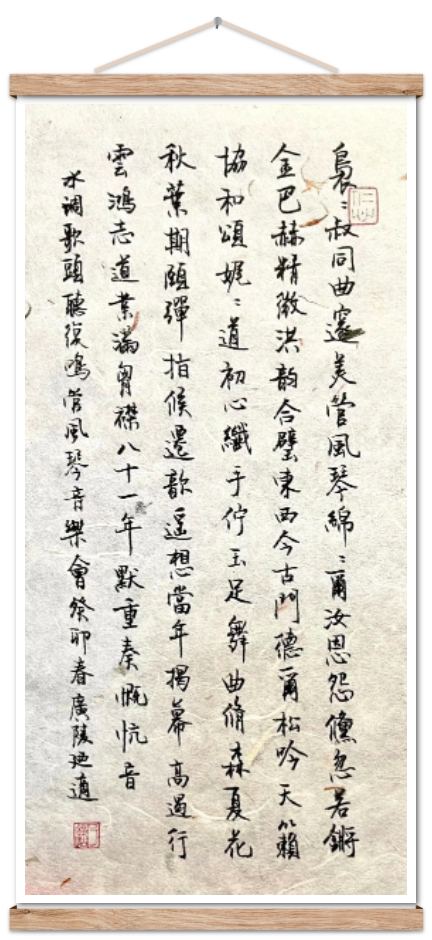 裊裊叔同曲窵美管風琴綿綿爾汝恩怨儵忽若鏘
金巴赫精微洪韵合璧東西今古門德爾松吟天籟
協和頌娓娓道初心纖手佇玉足舞曲脩森夏花
秋葉期頤彈指候遷歆遥想當年揭幕高遏行
雲鴻志道業滿胷襟八十一年默重奏慨忼音
水調歌頭聽復鳴管風琴音樂會癸卯春廣陵地適